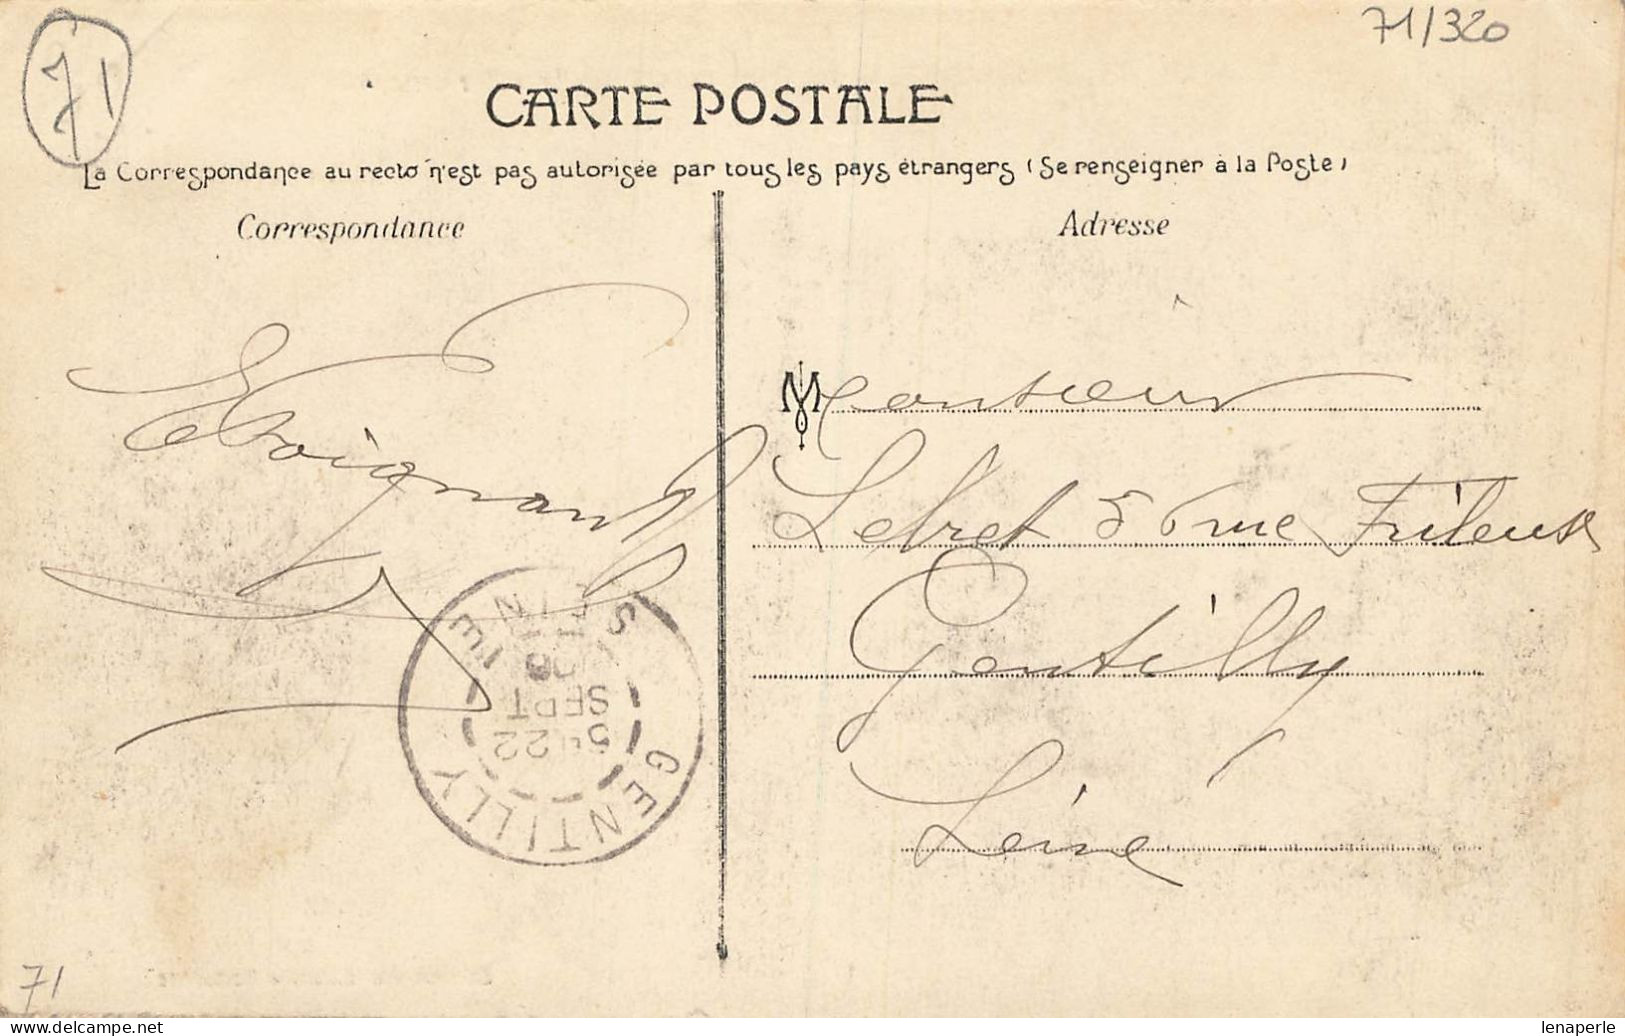 71
71/320
CARTE POSTALE
La Correspondance au recto n'est pas autorisée par tous les pays étrangers (Se renseigner à la Poste)
Correspondance
Adresse
Monsieur
Lebret 56 rue Frileuse
Gentilly
Seine
GENTILLY
SEINE
5 22
SEPT
08
71
lenaperle